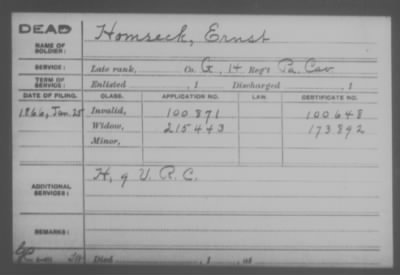 DEAD
Homseck, Ernst
NAME OF SOLDIER:
SERVICE: Late rank, Co. G, 14 Reg't Pa. Cav
TERM OF SERVICE: Enlisted , 1 Discharged , 1
DATE OF FILING. CLASS. APPLICATION NO. LAW. CERTIFICATE NO.
1866, Jan. 25 Invalid, 100871 100648
Widow, 215443 173892
Minor,
ADDITIONAL SERVICES: H, 9 V. R. C.
REMARKS:
Died , 1 , at